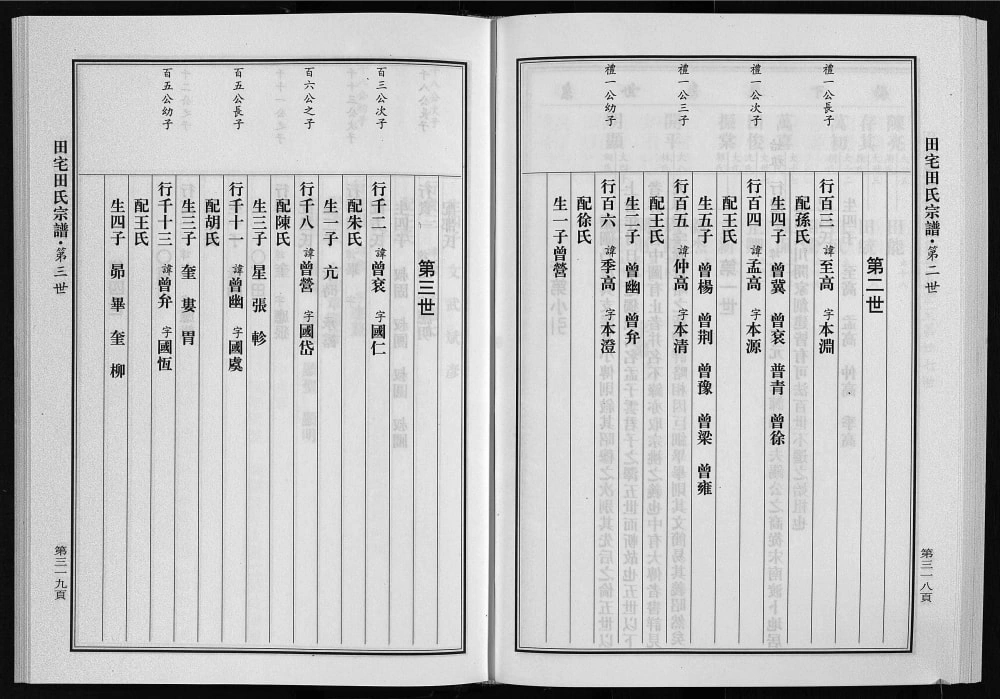 田宅田氏宗譜・第二世
第三一八頁
第二世
禮一公長子
行百三 諱至高 字本淵
配孫氏
生四子 曾冀 曾袞 普青 曾徐
禮一公次子
行百四 諱孟高 字本源
配王氏
生五子 曾楊 曾荆 曾豫 曾梁 曾雍
禮一公三子
行百五 諱仲高 字本清
配王氏
生二子 曾幽 曾弁
禮一公幼子
行百六 諱季高 字本澄
配徐氏
生一子曾營
第三世
百三公次子
行千二 諱曾袞 字國仁
配朱氏
生一子 亢
百六公之子
行千八 諱曾營 字國岱
配陳氏
生三子〇星 張 軫
百五公長子
行千十一 諱曾幽 字國虞
配胡氏
生三子 奎 婁 胃
百五公幼子
行千十三〇諱曾弁 字國恆
配王氏
生四子 昴 畢 奎 柳
田宅田氏宗譜・第三世
第三一九頁